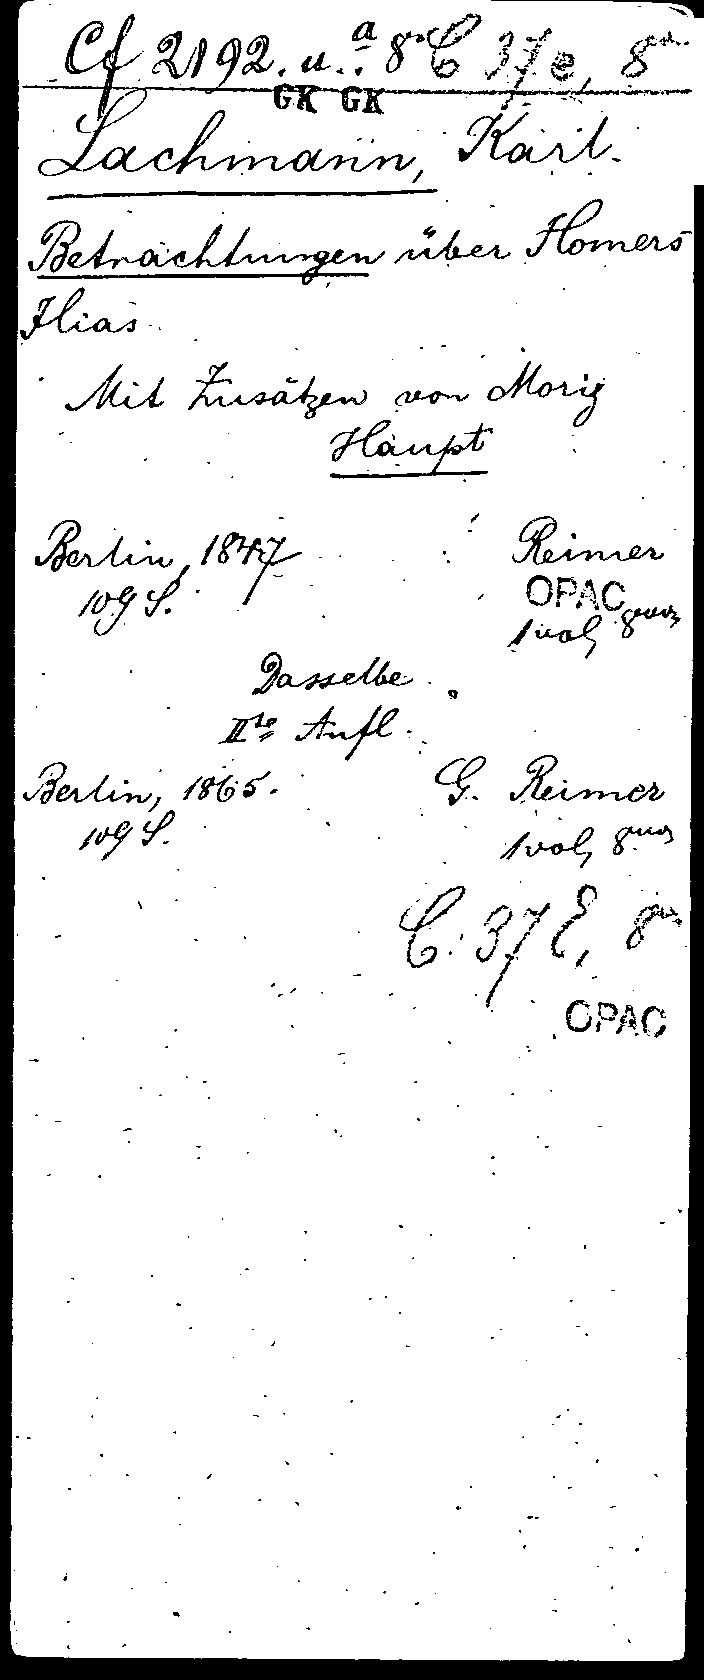 Cf 2192. u. a. 8° C 37e, 8°
GK GK
Lachmann, Karl.
Betrachtungen über Homers
Ilias
Mit Zusätzen von Moriz
Haupt
Berlin, 1847 Reimer
109 S. OPAC
1 vol,
Dasselbe
IIte Aufl.
Berlin, 1865. G. Reimer
109 S. 1 vol,
C. 37 E,
OPAC